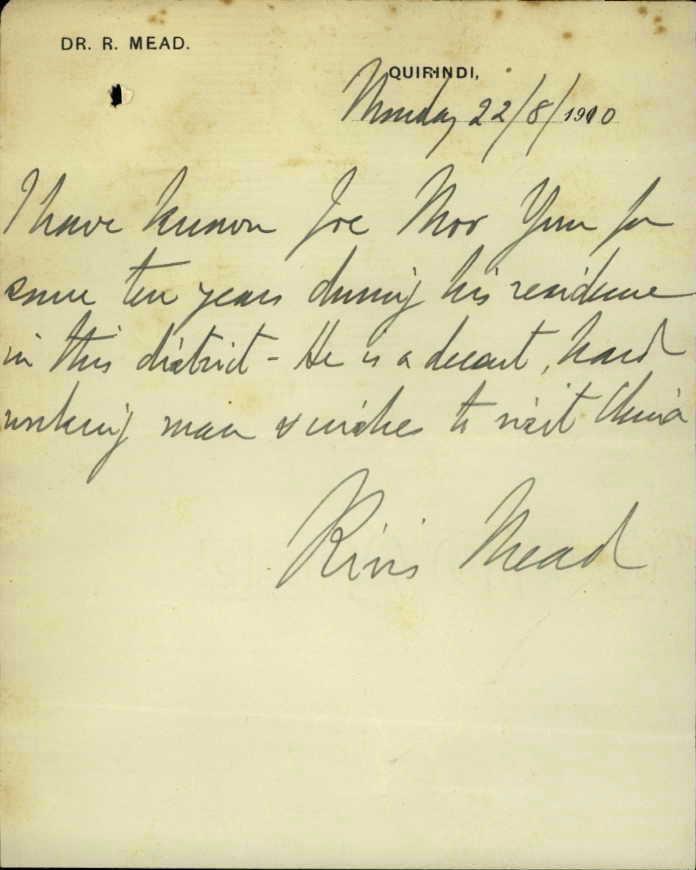 DR. R. MEAD.
QUIRINDI,
Monday 22/8/1910
I have known Joe Mor Yum for
some ten years during his residence
in this district - He is a decent, hard
working man & wishes to visit China
Mead